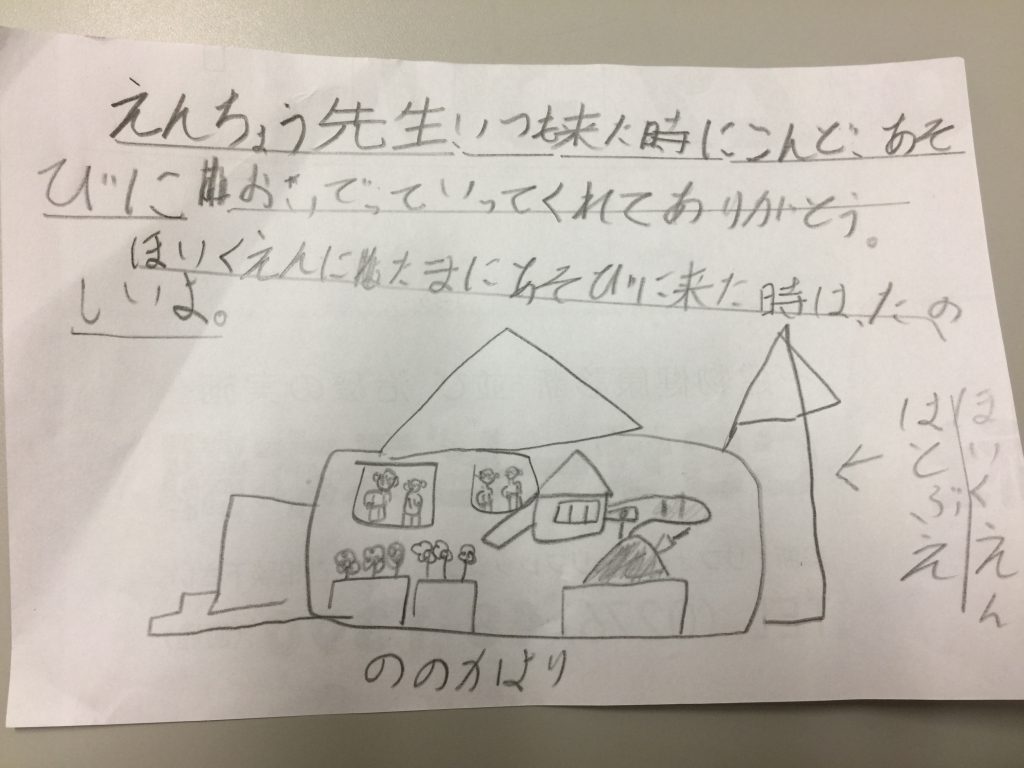 えんちょう先生、いつも来た時にこんど、あそ
びにおいでっていってくれてありがとう。
ほいくえんにたまにあそびに来た時は、たの
しいよ。
ほいくえん
はとぶえ
ののかより